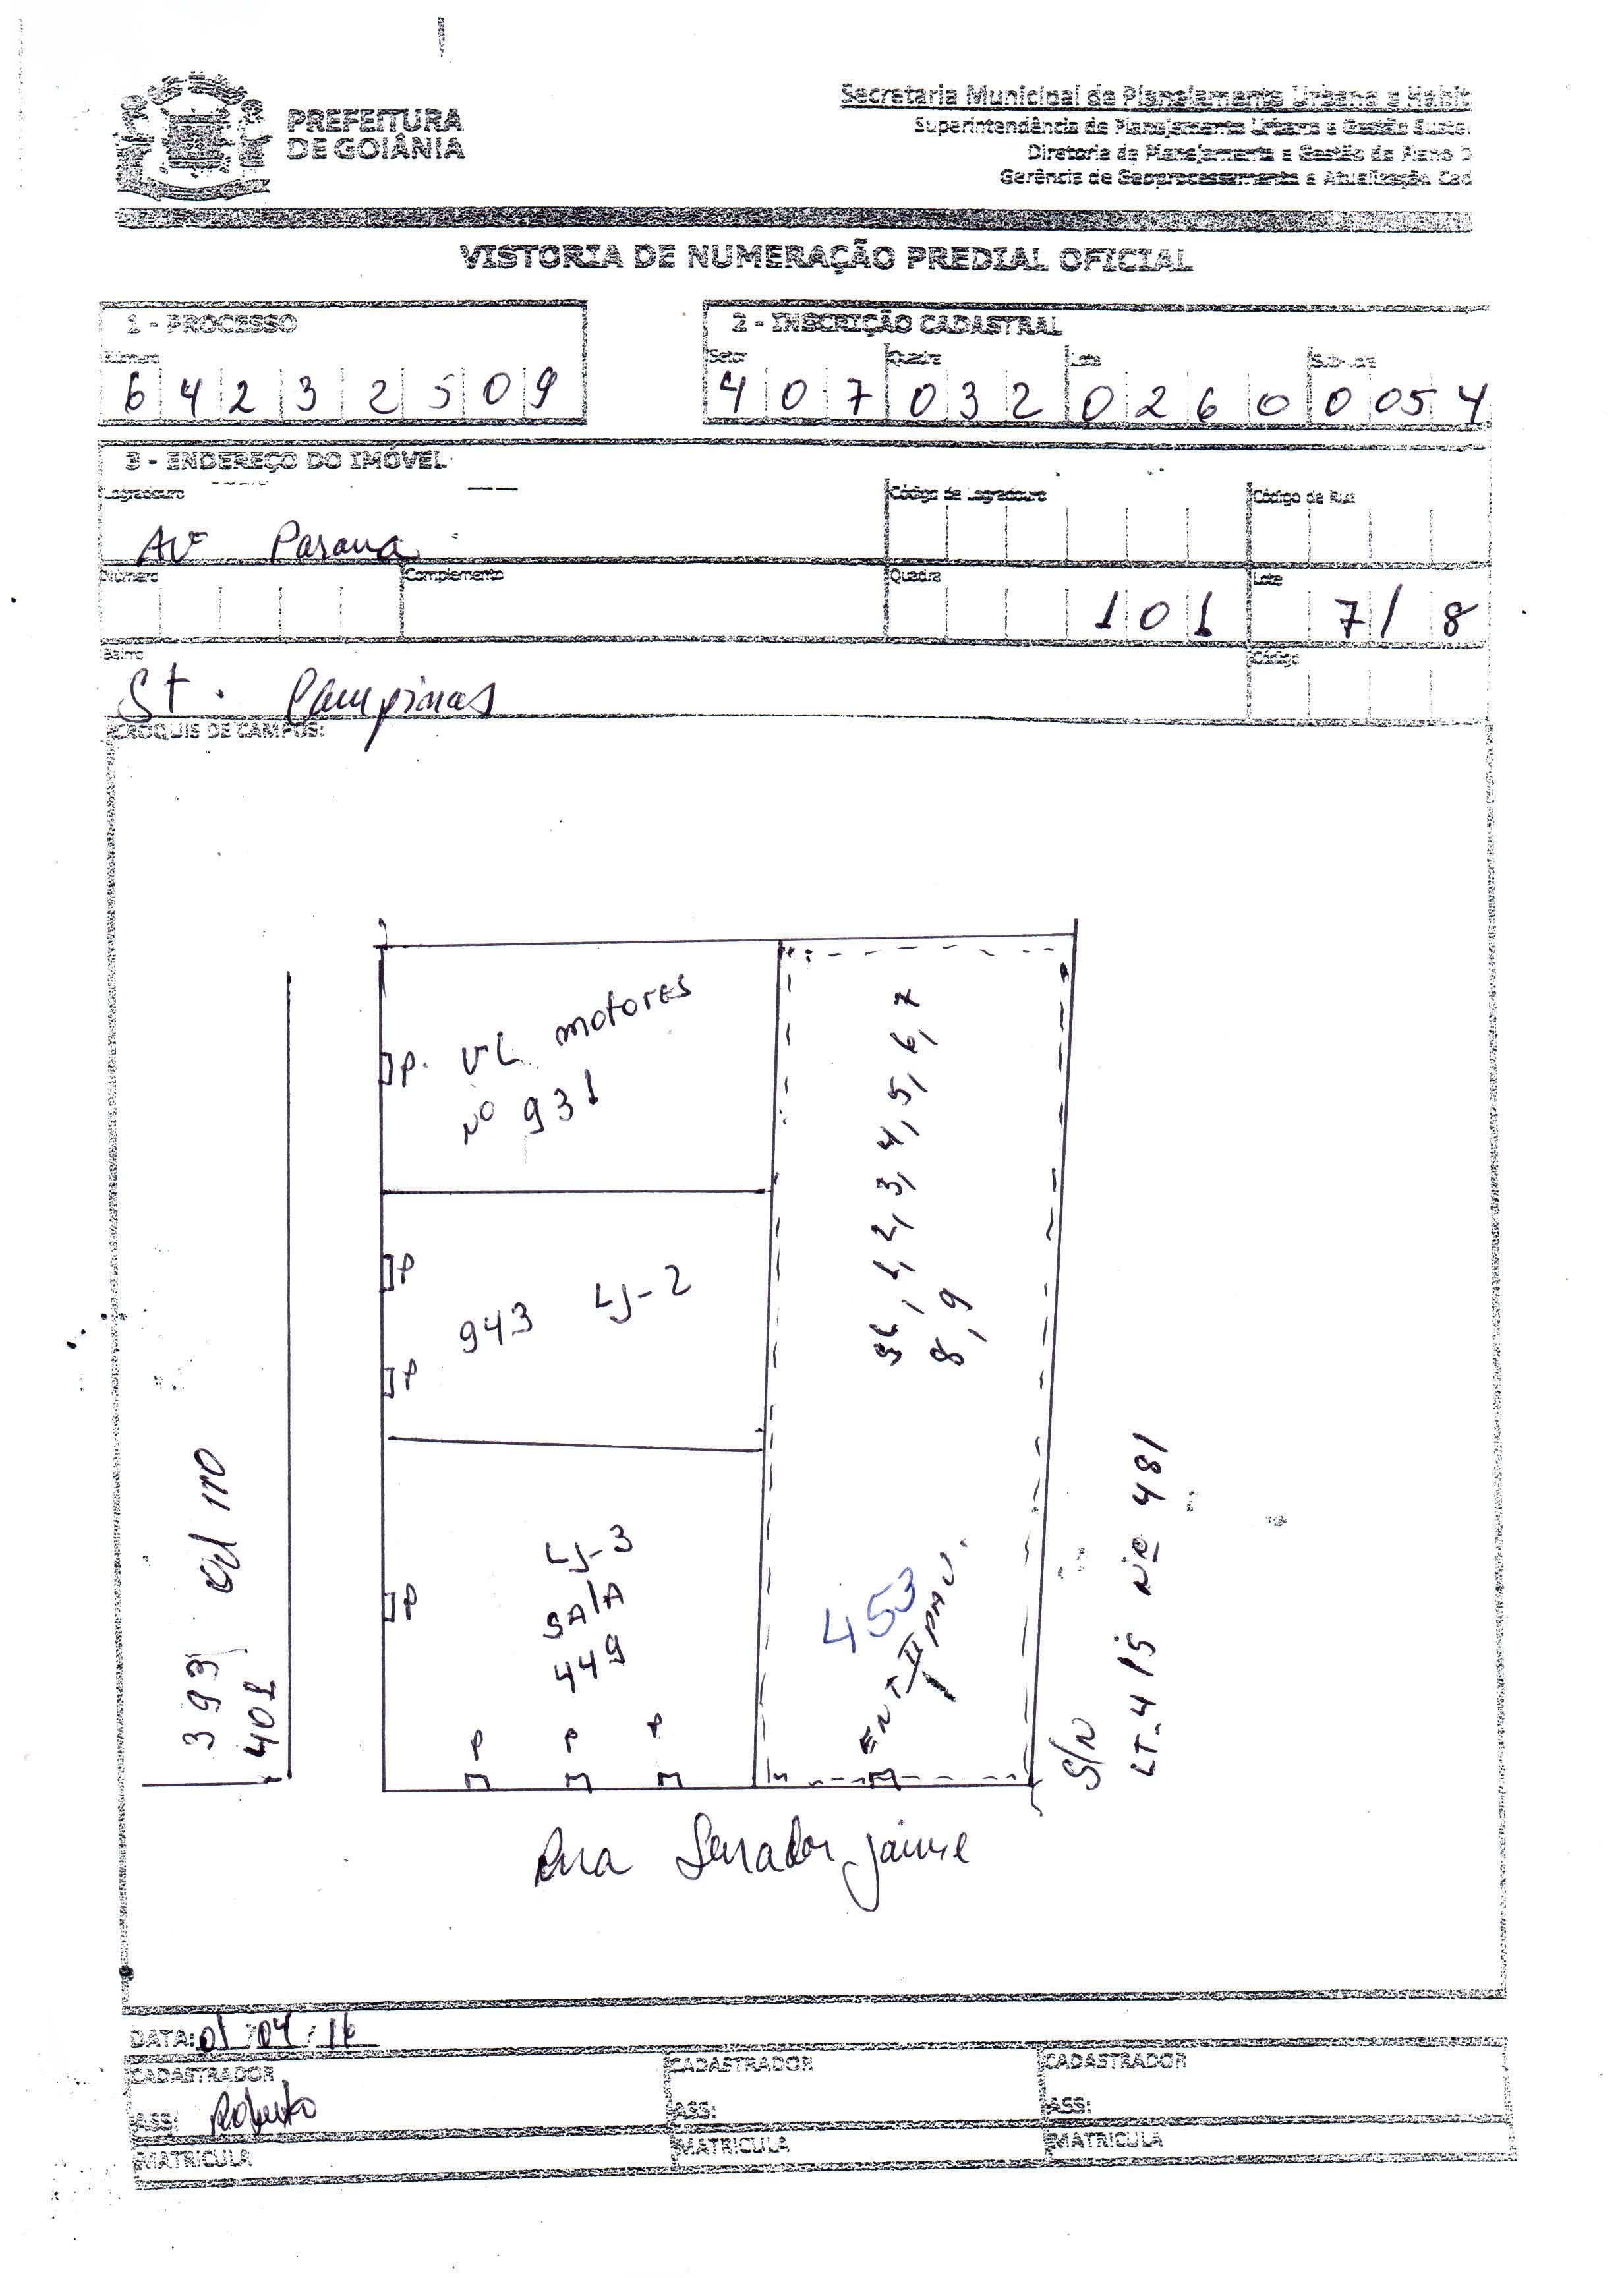 PREFEITURA
DE GOIÂNIA
Secretaria Municipal de Planejamento Urbano e Habit
Superintendência de Planejamento Urbano e Gestão Suste
Diretoria de Planejamento e Gestão do Plano D
Gerência de Geoprocessamento e Atualização Cad
VISTORIA DE NUMERAÇÃO PREDIAL OFICIAL
1 - PROCESSO
Número
6 4 2 3 2 5 0 9
2 - INSCRIÇÃO CADASTRAL
Setor Quadra Lote Sub-Lote
4 0 7 0 3 2 0 2 6 0 0 05 4
3 - ENDEREÇO DO IMÓVEL
Logradouro Código de Logradouro Código de Rua
Av Parana
Número Complemento Quadra Lote
1 0 1 7 / 8
Bairro Código
St. Campinas
CROQUIS DE CAMPOS:
P. VL motores
Nº 931
P
943 LJ-2
P
LJ-3
P SALA
449
P P P
SL, 1, 2, 3, 4, 5, 6, 7
8, 9
453
ENT II PAV.
393 Qd 110
401
S/N
LT-4/5 Nº 481
Rua Senador Jaime
DATA: 01/04/16
CADASTRADOR CADASTRADOR CADASTRADOR
ASS: Roberto ASS: ASS:
MATRICULA MATRICULA MATRICULA